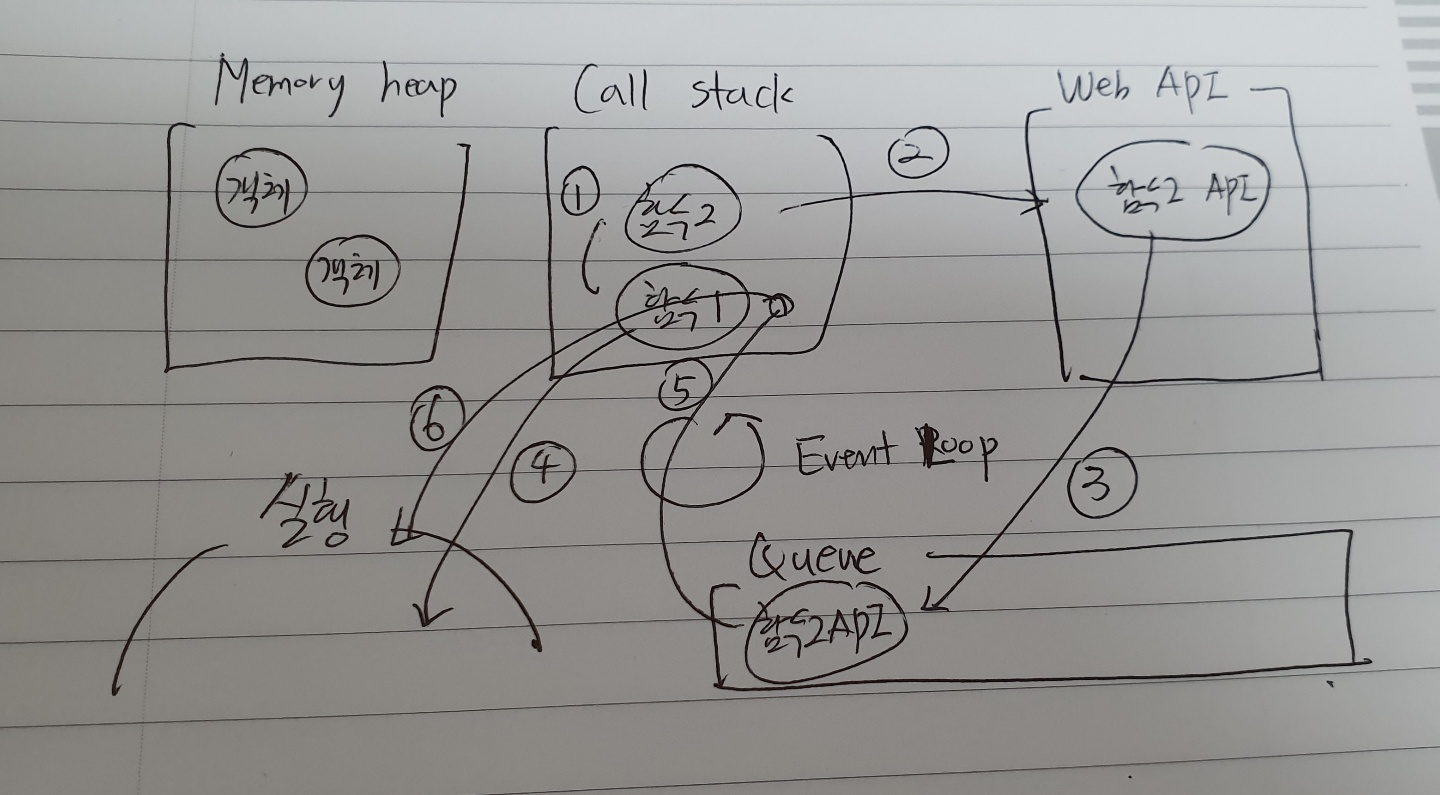 Memory heap
Call stack
Web API
객체
객체
①
함수2
함수1
②
함수2 API
③
④
⑤
⑥
Event Loop
실행
Queue
함수2API